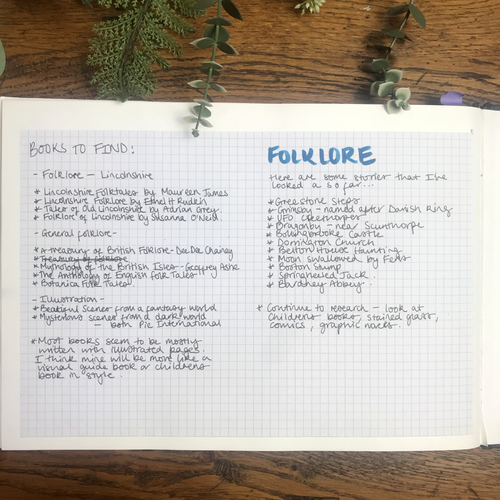 BOOKS TO FIND:
- Folklore - Lincolnshire
* Lincolnshire Folktales by Maureen James
* Lincolnshire Folklore by Ethel H Rudkin
* Tales of Old Lincolnshire by Adrian Grey.
* Folklore of Lincolnshire by Susanna O'Neill.
- General folklore-
* A treasury of British Folklore - Dee Dee Chainey
* Treasury of folklore
* Mythology of the British Isles - Geoffrey Ashe
* The Anthology of English folk Tales
* Botanica Folk Tales
- Illustration -
* Beautiful scenes from a fantasy world
* Mysterious scenes from a dark world
- both Pie International
* Most books seem to be mostly
written with illustrated pages.
I think mine will be more like a
visual guide book or childrens
book in style.
FOLKLORE
Here are some stories that I've
looked at so far...
* Greestone steps
* Grimsby - named after Danish King
* UFO Cleethorpes
* Dragonby - near Scunthorpe
* Bolingbroke Castle
* Dorrington Church
* Belton House Haunting
* Moon swallowed by Fens
* Boston Stump
* Springheeled Jack
* Bardney Abbey.
* Continue to research - look at
childrens books, stained glass,
comics, graphic novels.